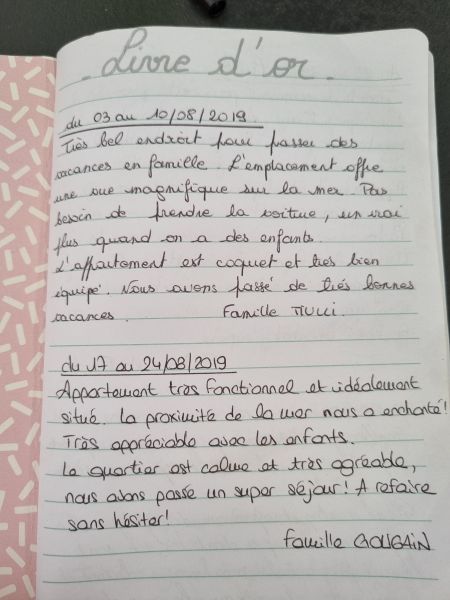 Livre d'or.
du 03 au 10/08/2019
Très bel endroit pour passer des
vacances en famille. L'emplacement offre
une vue magnifique sur la mer. Pas
besoin de prendre la voiture, un vrai
plus quand on a des enfants.
L'appartement est coquet et très bien
équipé. Nous avons passé de très bonnes
vacances. Famille
du 17 au 24/08/2019
Appartement très fonctionnel et idéalement
situé. La proximité de la mer nous a enchanté!
Très appréciable avec les enfants.
Le quartier est calme et très agréable,
nous avons passé un super séjour! A refaire
sans hésiter!
famille GOUGAIN